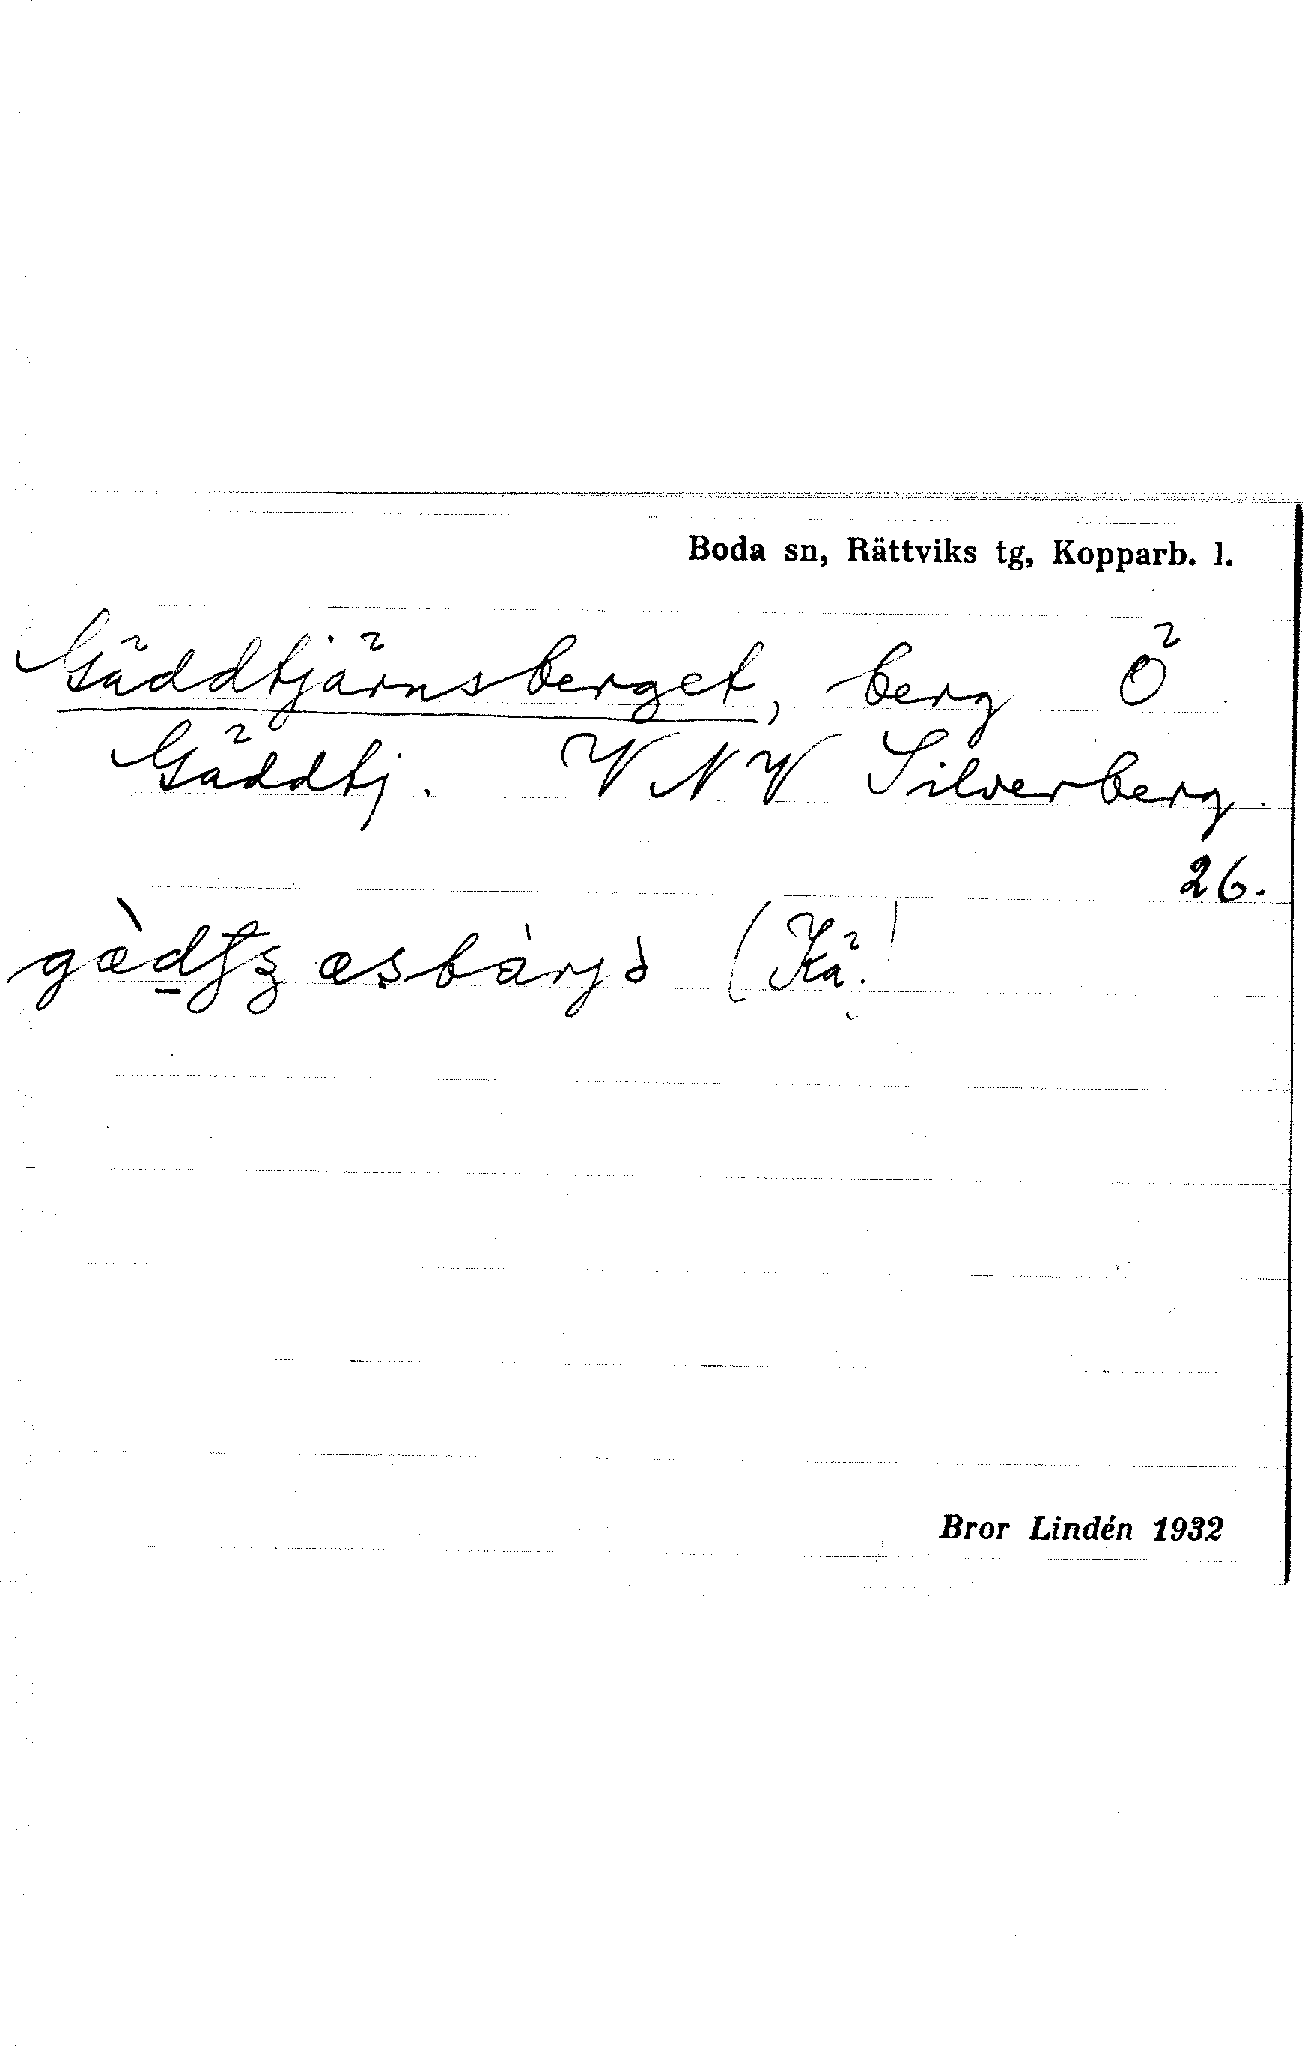 Boda sn, Rättviks tg, Kopparb. l.
Gäddtjärnsberget, berg Ö
Gäddtj. VNV Silverberg.
26.
(Kä.!
Bror Lindén 1932